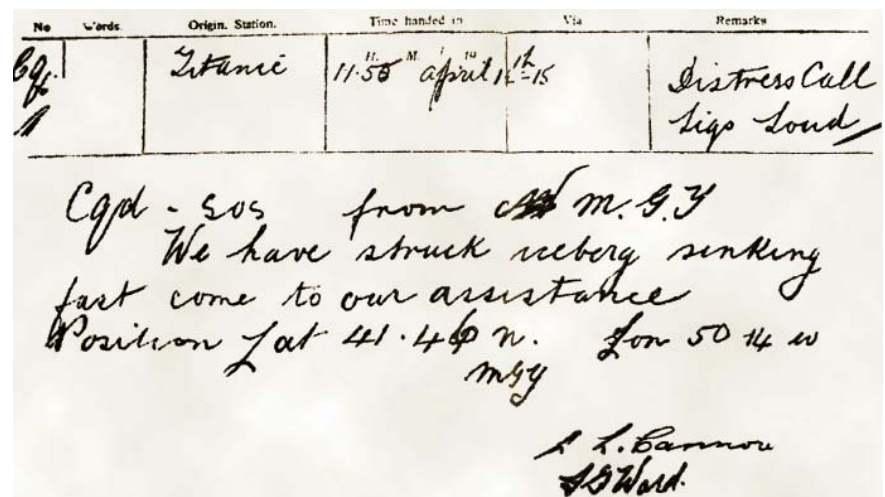 No Words. Origin. Station. Time handed in Via Remarks
H. M.
Titanic 11.50 april 14th-15 Distress Call
Sigs Loud
Cqd - SOS from M.G.Y
We have struck iceberg sinking
fast come to our assistance
Position Lat 41.46 n. Lon 50 14 w
MGY
L. Cannon
SG Ward.